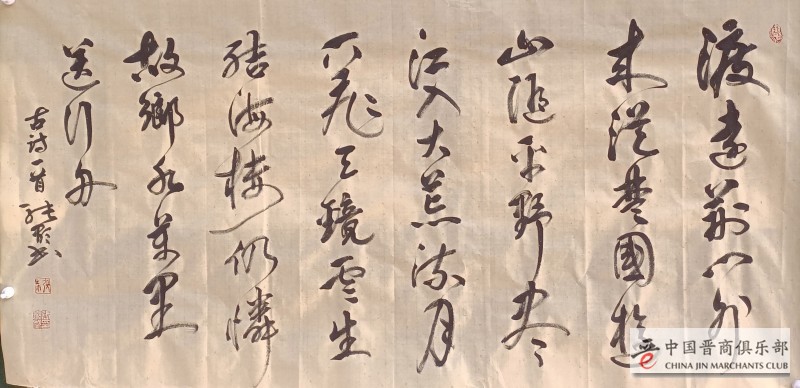 渡遠荆门外
来從楚國遊
山随平野尽
江入大荒流月
下飛天鏡雲生
结海楼仍憐
故鄉水萬里
送行舟
古诗一首
书
中国晋商俱乐部
CHINA JIN MARCHANTS CLUB